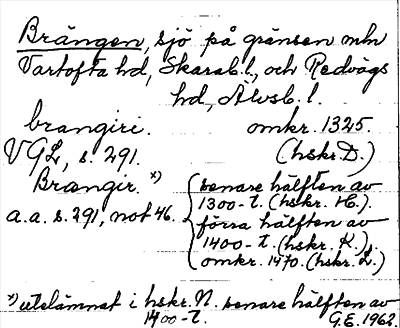 Brängen, sjö på gränsen mln
Vartofta hd, Skarab. l., och Redvägs
hd, Älvsb. l.
brangiri. omkr. 1325.
VGL, s. 291. (hskr. D.)
Brængir. *) senare hälften av
1300-t. (hskr. H.)
a.a. s. 291, not 46. förra hälften av
1400-t. (hskr. K.),
omkr. 1470. (hskr. L.)
*) utelämnat i hskr. N. senare hälften av
1400-t. G.E. 1962.